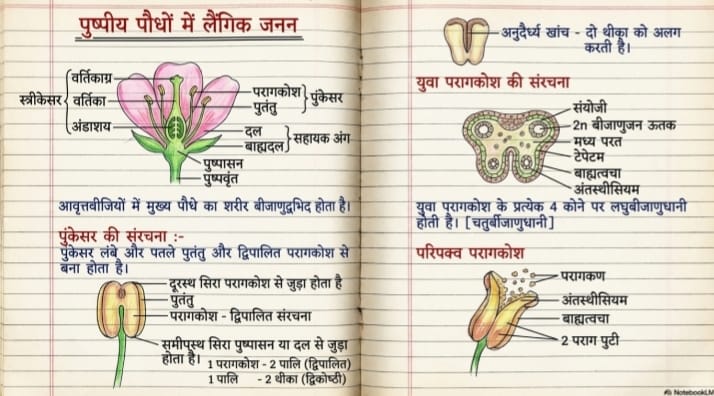 पुष्पीय पौधों में लैंगिक जनन
वर्तिकाग्र
स्त्रीकेसर
वर्तिका
अंडाशय
परागकोश
पुतंतु
पुंकेसर
दल
बाह्यदल
सहायक अंग
पुष्पासन
पुष्पवृंत
आवृत्तबीजियों में मुख्य पौधे का शरीर बीजाणुद्वभिद होता है।
पुंकेसर की संरचना :-
पुंकेसर लंबे और पतले पुतंतु और द्विपालित परागकोश से
बना होता है।
दूरस्थ सिरा परागकोश से जुड़ा होता है
पुतंतु
परागकोश - द्विपालित संरचना
समीपस्थ सिरा पुष्पासन या दल से जुड़ा
होता है।
1 परागकोश - 2 पालि (द्विपालित)
1 पालि - 2 थीका (द्विकोष्ठी)
अनुदैर्ध्य खांच - दो थीका को अलग
करती है।
युवा परागकोश की संरचना
संयोजी
2n बीजाणुजन ऊतक
मध्य परत
टेपेटम
बाह्यत्वचा
अंतस्थीसियम
युवा परागकोश के प्रत्येक 4 कोने पर लघुबीजाणुधानी
होती है। [चतुर्बीजाणुधानी]
परिपक्व परागकोश
परागकण
अंतस्थीसियम
बाह्यत्वचा
2 पराग पुटी
NotebookLM